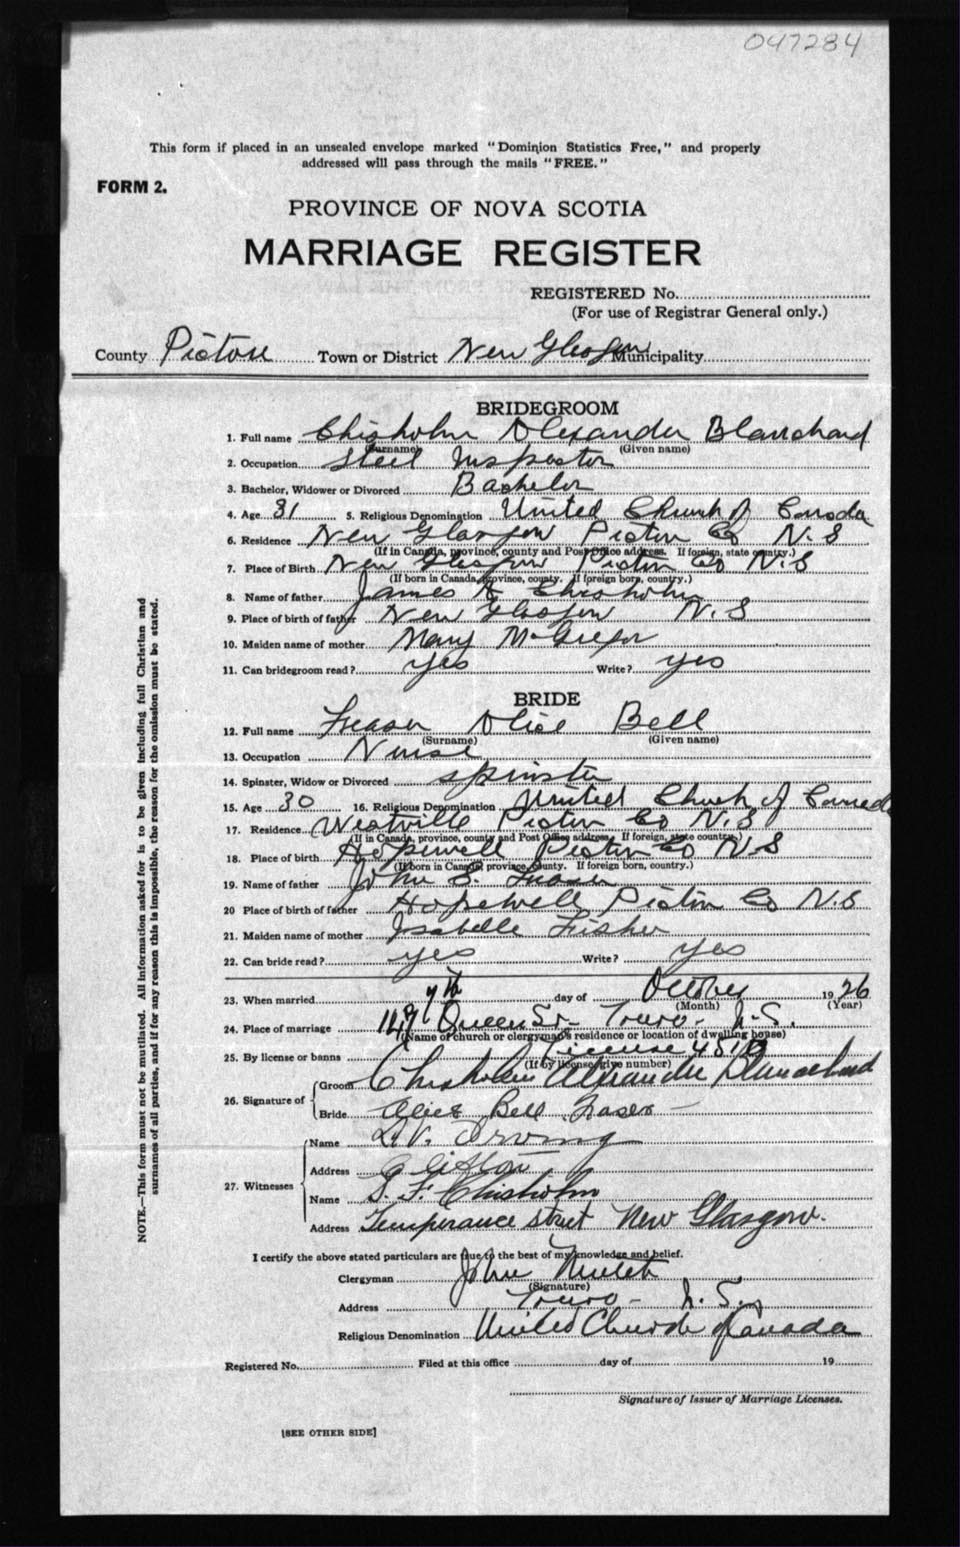 047284
This form if placed in an unsealed envelope marked "Dominion Statistics Free," and properly
addressed will pass through the mails "FREE."
FORM 2.
PROVINCE OF NOVA SCOTIA
MARRIAGE REGISTER
REGISTERED No.
(For use of Registrar General only.)
County Pictou Town or District New Glasgow Municipality
BRIDEGROOM
1. Full name Chisholm Alexander Blanchard
(Surname) (Given name)
2. Occupation Steel Inspector
3. Bachelor, Widower or Divorced Bachelor
4. Age 31 5. Religious Denomination United Church of Canada
6. Residence New Glasgow Pictou Co N.S
(If in Canada, province, county and Post Office address. If foreign, state country.)
7. Place of Birth New Glasgow Pictou Co N.S
(If born in Canada, province, county. If foreign born, country.)
8. Name of father James Chisholm
9. Place of birth of father New Glasgow N.S
10. Maiden name of mother Mary McGregor
11. Can bridegroom read? yes Write? yes
BRIDE
12. Full name Fraser Alice Bell
(Surname) (Given name)
13. Occupation Nurse
14. Spinster, Widow or Divorced spinster
15. Age 30 16. Religious Denomination United Church of Canada
17. Residence Westville Pictou Co N.S
(If in Canada, province, county and Post Office address. If foreign, state country.)
18. Place of birth Hopewell Pictou Co N.S
(If born in Canada, province, county. If foreign born, country.)
19. Name of father John S. Fraser
20 Place of birth of father Hopewell Pictou Co N.S
21. Maiden name of mother Isabelle Fisher
22. Can bride read? yes Write? yes
23. When married day of October 1926
(Month) (Year)
24. Place of marriage Queen St- Truro- N.S.
(Name of church or clergyman's residence or location of dwelling house)
25. By license or banns License
(If by license, give number)
26. Signature of Groom Chisholm Alexander Blanchard
Bride Alice Bell Fraser
27. Witnesses Name Irving
Address
Name Chisholm
Address Temperance Street New Glasgow.
I certify the above stated particulars are true to the best of my knowledge and belief.
Clergyman John
(Signature)
Address Truro- N.S.
Religious Denomination United Church of Canada
Registered No. Filed at this office day of 19
Signature of Issuer of Marriage Licenses.
[SEE OTHER SIDE]
NOTE.—This form must not be mutilated. All information asked for is to be given including full Christian and
surnames of all parties, and if for any reason this is impossible, the reason for the omission must be stated.